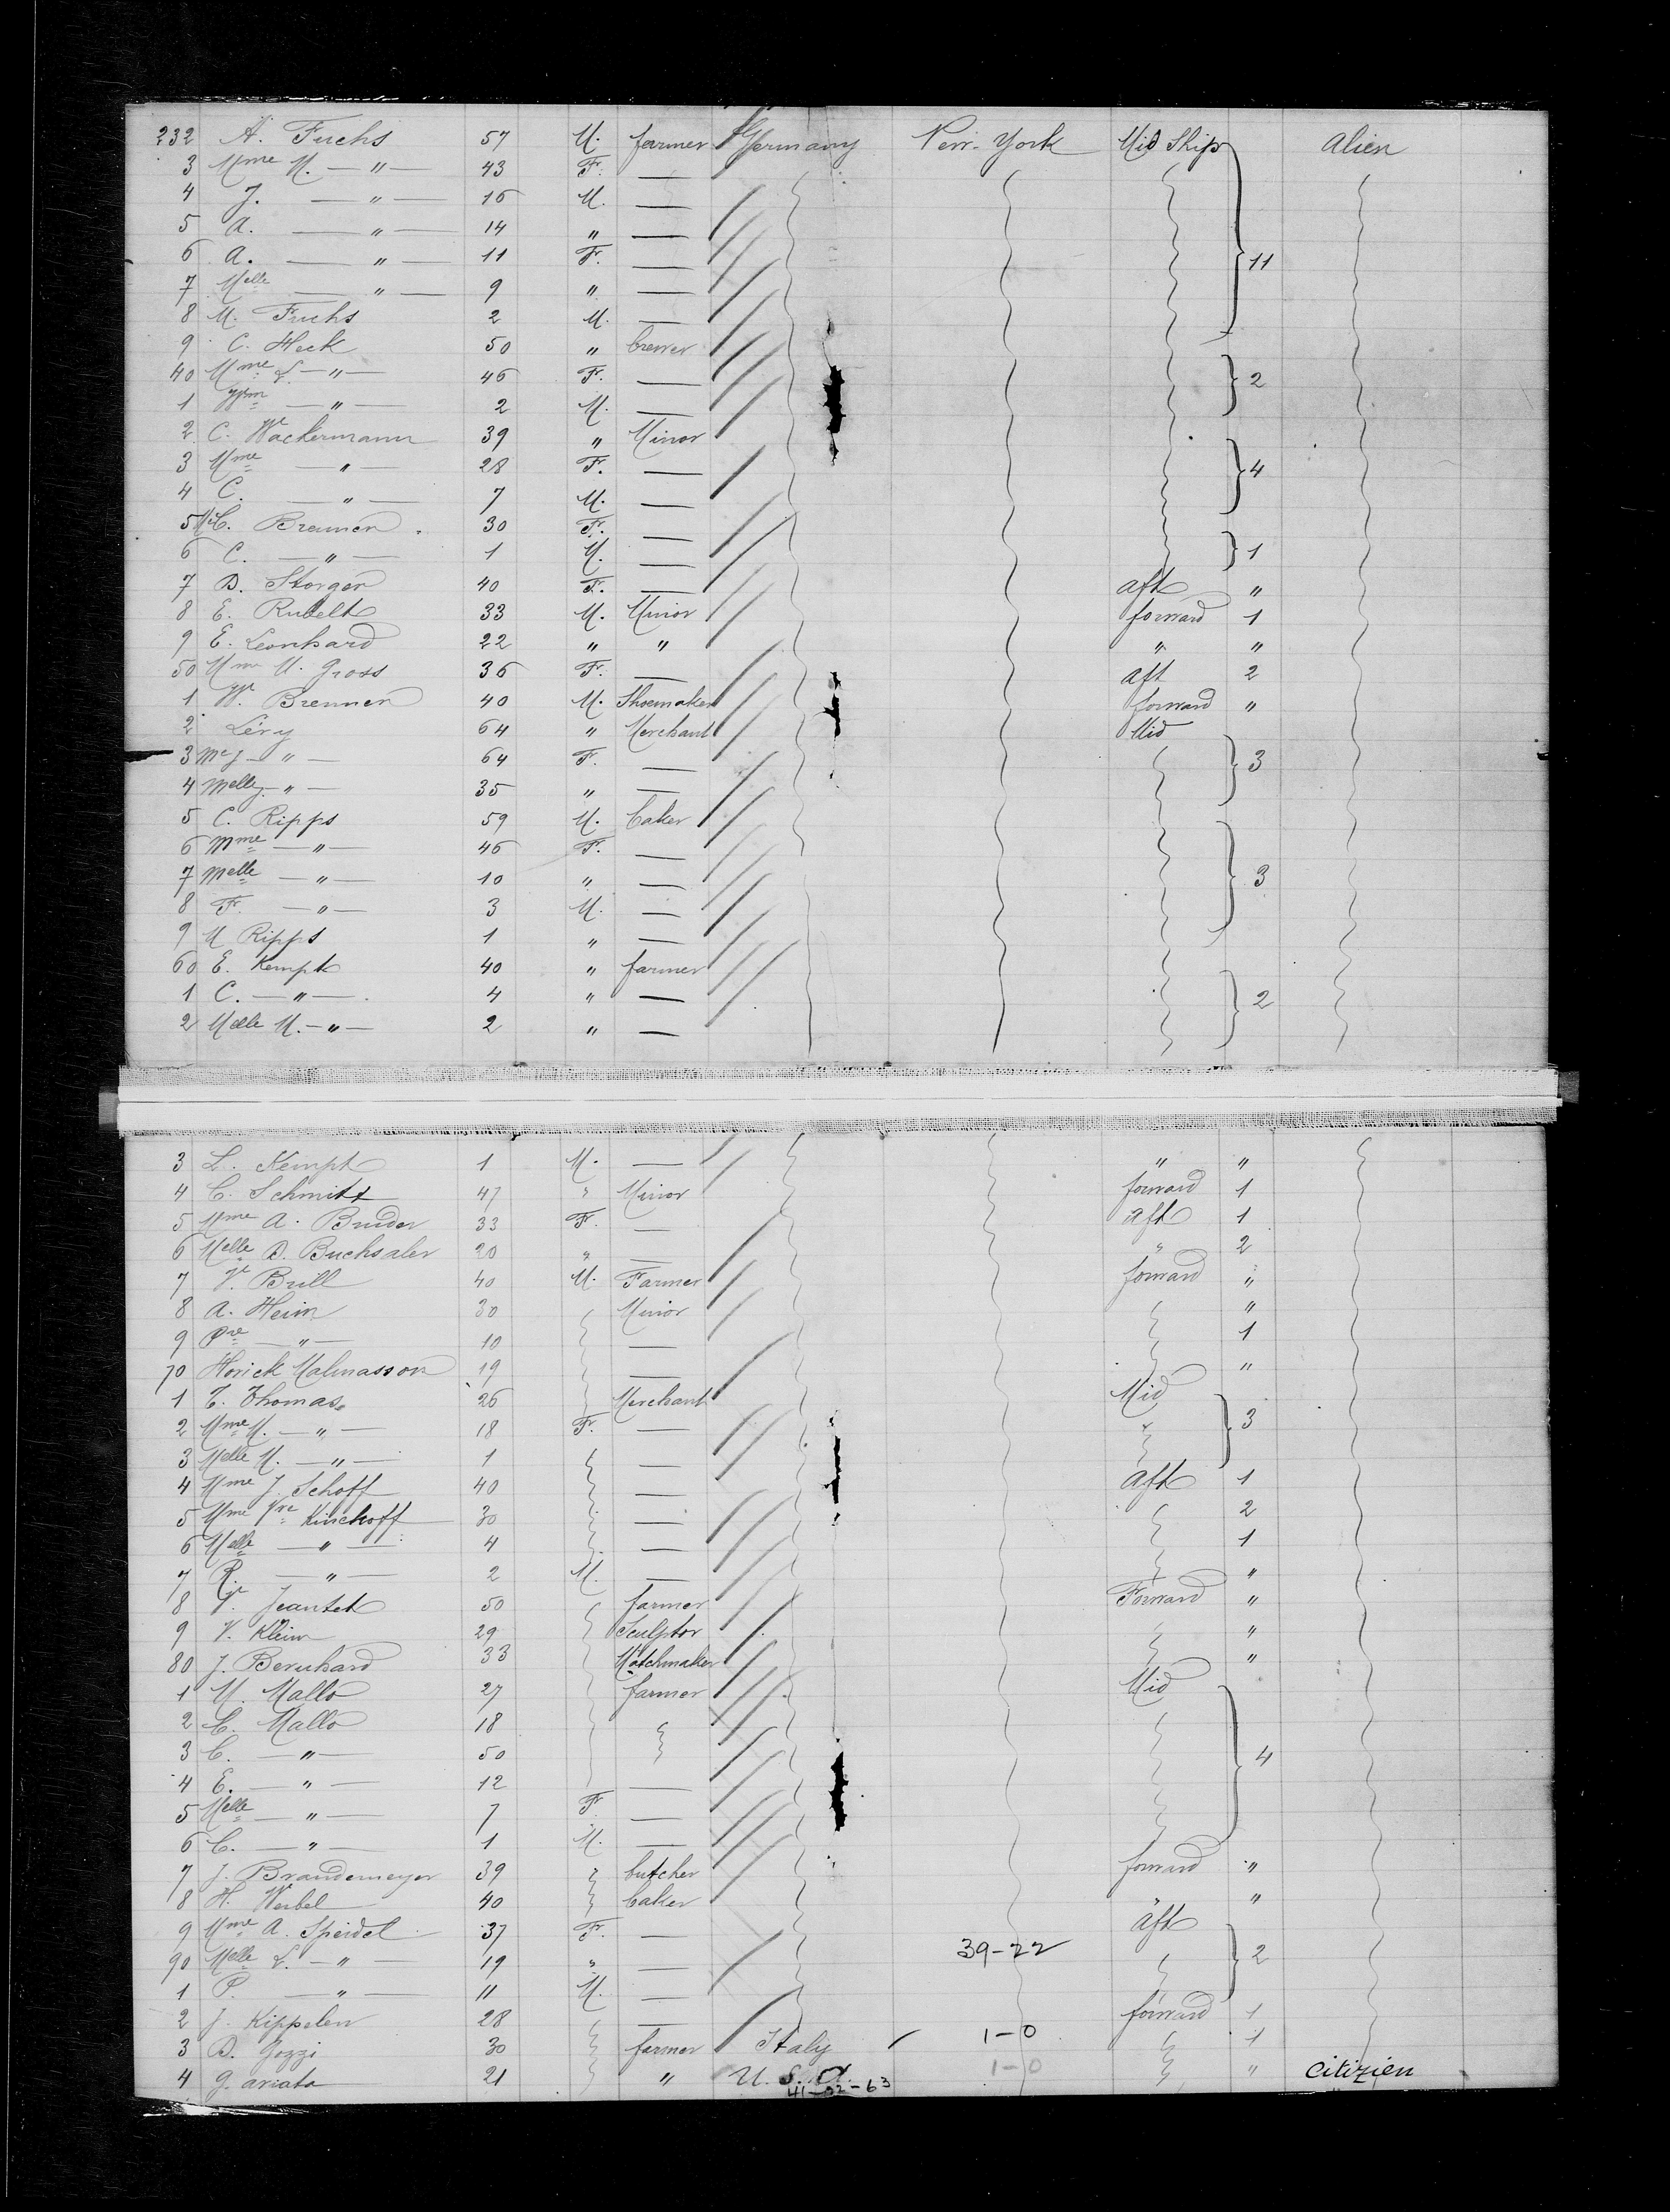 232 A. Fuchs 57 M. farmer Germany New-York Mid Ship alien
3 Mme M. — " — 43 F. —
4 J. — " — 16 M. —
5 A. — " — 14 " —
6 A. — " — 11 F. — 11
7 Melle — " — 9 " —
8 M. Fuchs 2 M. —
9 C. Heck 50 " brewer
40 Mme L. — " — 46 F. — 2
1 Wm — " — 2 M. —
2 C. Wackermann 39 " Minor
3 Mme — " — 28 F. — 4
4 C. — " — 7 M. —
5 C. Brennen 30 F. —
6 C. — " — 1 M. — 1
7 B. Storger 40 F. — aft "
8 E. Rubelt 33 M. Minor forward 1
9 E. Leonhard 22 " " " "
50 Mme M. Gross 36 F. — aft 2
1 W. Brennen 40 M. Shoemaker forward "
2 Lévy 64 " Merchant Mid
3 Me J — " — 64 F. — 3
4 Melle J. — " — 35 " —
5 C. Ripps 59 M. baker
6 Mme — " — 46 F. —
7 Melle — " — 10 " — 3
8 F. — " — 3 M. —
9 M Ripps 1 " —
60 E. Kempt 40 " farmer
1 C. — " — 4 " — 2
2 Melle M. — " — 2 " —
3 L. Kempt 1 M. — " "
4 C. Schmitt 47 " Minor forward 1
5 Mme A. Bruder 33 F. — aft 1
6 Melle B. Buchsaler 20 " — " 2
7 V. Brill 40 M. Farmer forward "
8 A. Heim 30 Minor "
9 Pre — " — 10 — 1
70 Horick Malmasson 19 — "
1 T. Thomas 26 Merchant Mid
2 Mme M. — " — 18 F. — 3
3 Melle M. — " — 1 —
4 Mme J. Schoff 40 — aft 1
5 Mme Vve Kirschoff 30 — 2
6 Melle — " — 4 — 1
7 R. — " — 2 M. — "
8 V. Jeantet 50 farmer Forward "
9 V. Klein 29 Sculptor "
80 J. Bernhard 33 Watchmaker "
1 M. Mallo 27 farmer Mid
2 C. Mallo 18
3 C. — " — 50 4
4 E. — " — 12 —
5 Melle — " — 7 F —
6 C. — " — 1 M. —
7 J. Brandemeyer 39 butcher forward "
8 H. Weibel 40 baker " "
9 Mme A. Speidel 37 F. — aft
90 Melle L. — " — 19 " — 39-22 2
1 P. — " — 11 M. —
2 J. Kippelen 28 — forward 1
3 B. Gozzi 30 farmer Italy 1-0 1
4 G. ariata 21 " U. S. A. 1-0 " citizien
41-02-63